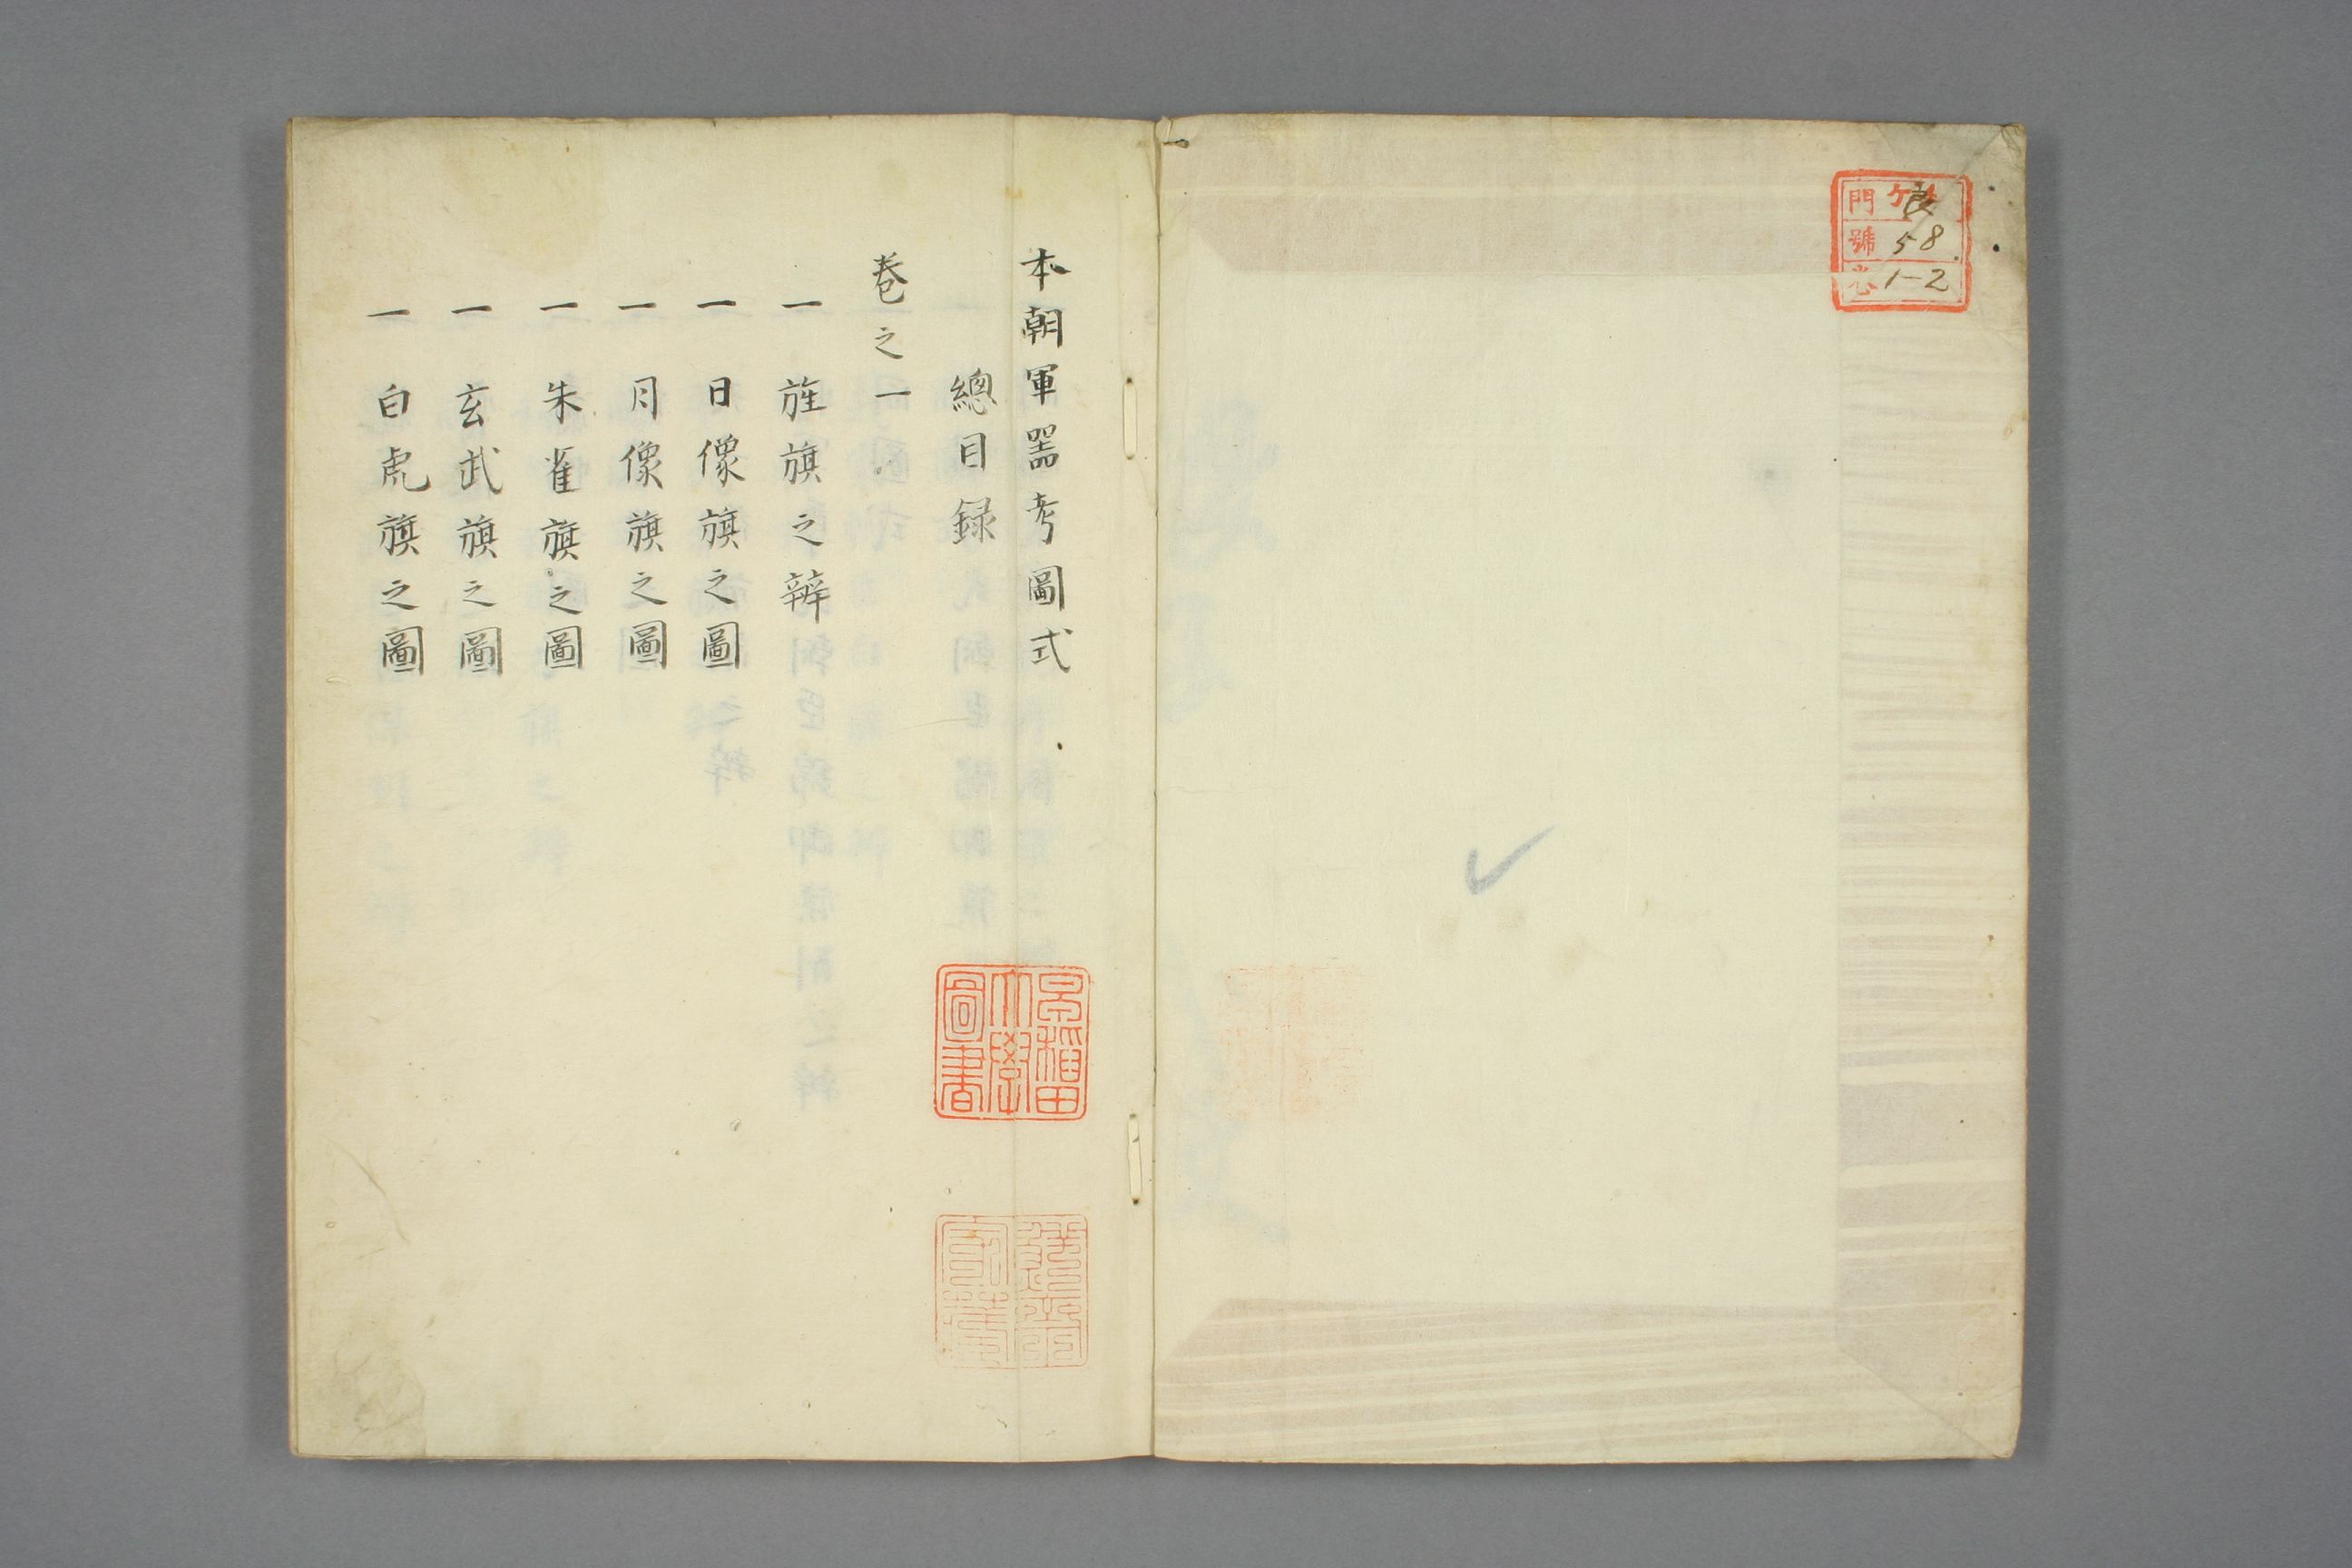 門
號 58
1-2
本朝軍噐考圖式
總目録
卷之一
一 旌旗之辨
一 日像旗之圖
一 月像旗之圖
一 朱雀旗之圖
一 玄武旗之圖
一 白虎旗之圖
早稲田
大學
圖書